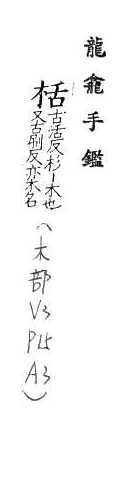 龍龕手鑑
栝古活反杉丨木也
又古刮反亦木名
(木部
V3
P15
A3)